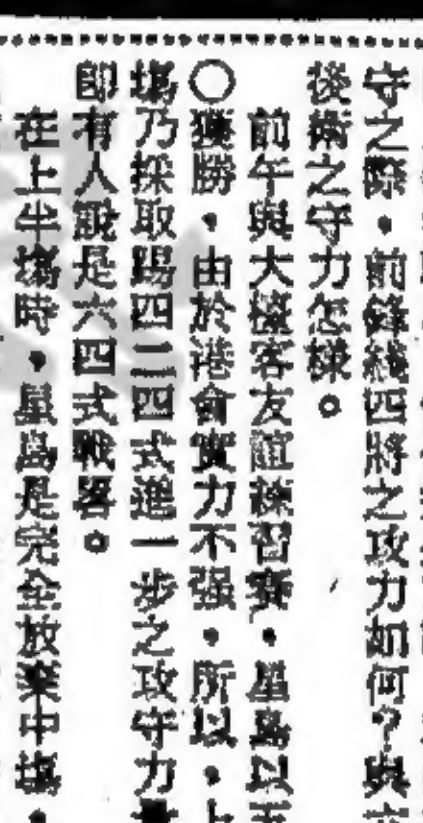 守之際，前鋒綫四將之攻力如何？與
後衛之守力怎樣。
前午與大客友誼練習賽，星島以五
○獲勝，由於港會實力不强，所以，上
塲乃採取踢四二四式進一步之攻守力
即有人說是六四式戰畧。
在上半塲時，星島是完全放棄中塲，